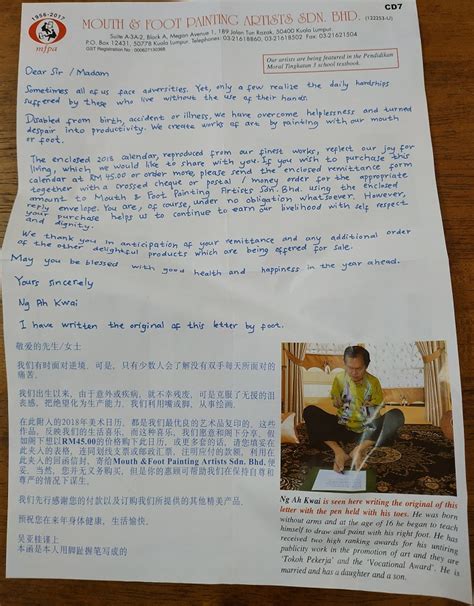 1956-2017
mfpa
MOUTH & FOOT PAINTING ARTISTS SDN. BHD. (122253-U)
CD7
Suite A-3A-2, Block A, Megan Avenue 1, 189 Jalan Tun Razak, 50400 Kuala Lumpur
P.O. Box 12431, 50778 Kuala Lumpur. Telephones: 03-21618860, 03-21618502
GST Registration No
Our artists are being featured in the Pendidikan
Moral Tingkatan 3 school textbook.
Dear Sir / Madam
Sometimes all of us face adversities. Yet, only a few realise the daily hardships
suffered by those who live without the use of their hands.
Disabled from birth, accident or illness, we have overcome helplessness and turned
despair into productivity. We create works of art by painting with our mouth
or foot.
The enclosed 2018 calendar, reproduced from our finest works, reflect our joy for
living, which we would like to share with you. If you wish to purchase this
calendar at RM 45.00 or order more, please send the enclosed remittance form
together with a crossed cheque or postal / money order for the appropriate
amount to Mouth & Foot Painting Artists Sdn. Bhd. using the enclosed
reply envelope. You are, of course, under no obligation whatsoever. However,
your purchase helps us to continue to earn our livelihood with self respect
and dignity.
We thank you in anticipation of your remittance and any additional order
of the other delightful products which are being offered for sale.
May you be blessed with good health and happiness in the year ahead.
Yours sincerely
Ng Ah Kwai
I have written the original of this letter by foot.
敬爱的先生/女士
我们有时面对逆境，可是，只有少数人会了解没有双手每天所面对的
痛苦。
我们出生以来，由于意外或疾病，就不幸残废，可是克服了无援的沮
表感，把绝望化为生产能力，我们利用嘴或脚，从事绘画。
在此附人的2018年美术日历，都是我们最优良的艺术品复印的，这些
作品，反映我们的生活喜乐，而这种喜乐，我们愿意和阁下分享。假
如阁下想以RM45.00的价格购下此日历，或更多套的话，请您填妥在
此夹入的表格，连同划线支票或邮政汇票，住明应付的款额，利用在
此夹人的回函信封，寄给Mouth &Foot Painting Artists Sdn. Bhd.便
妥。当然，您并无义务购买，但是你的惠顾可帮助我们在保持自尊和
尊严的情况下谋生。
我们先行感谢您的付款以及订购我们所提供的其他精美产品。
预祝您在来年身体健康，生活愉快。
吴亚桂谨上
本函是本人用脚趾握笔写成的
Ng Ah Kwai is seen here writing the original of this
letter with the pen held with his toes. He was born
without arms and at the age of 16 he began to teach
himself to draw and paint with his right foot. He has
received two high ranking awards for his untiring
publicity work in the promotion of art and they are
'Tokoh Pekerja' and the 'Vocational Award'. He is
married and has a daughter and a son.